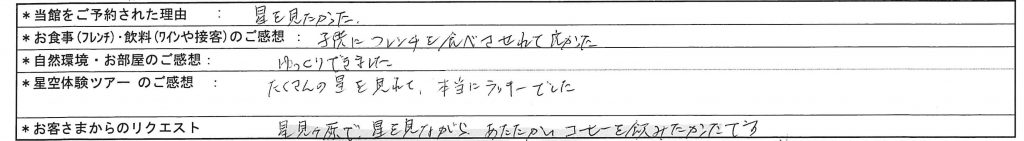 *当館をご予約された理由 : 星を見たかった.
*お食事(フレンチ)・飲料(ワインや接客)のご感想 : 子供にフレンチを食べさせれて良かった
*自然環境・お部屋のご感想 : ゆっくりできました
*星空体験ツアー のご感想 : たくさんの星を見れて、本当にラッキーでした
*お客さまからのリクエスト 星見ヶ原で、星を見ながら あたたかい コーヒーを飲みたかったです